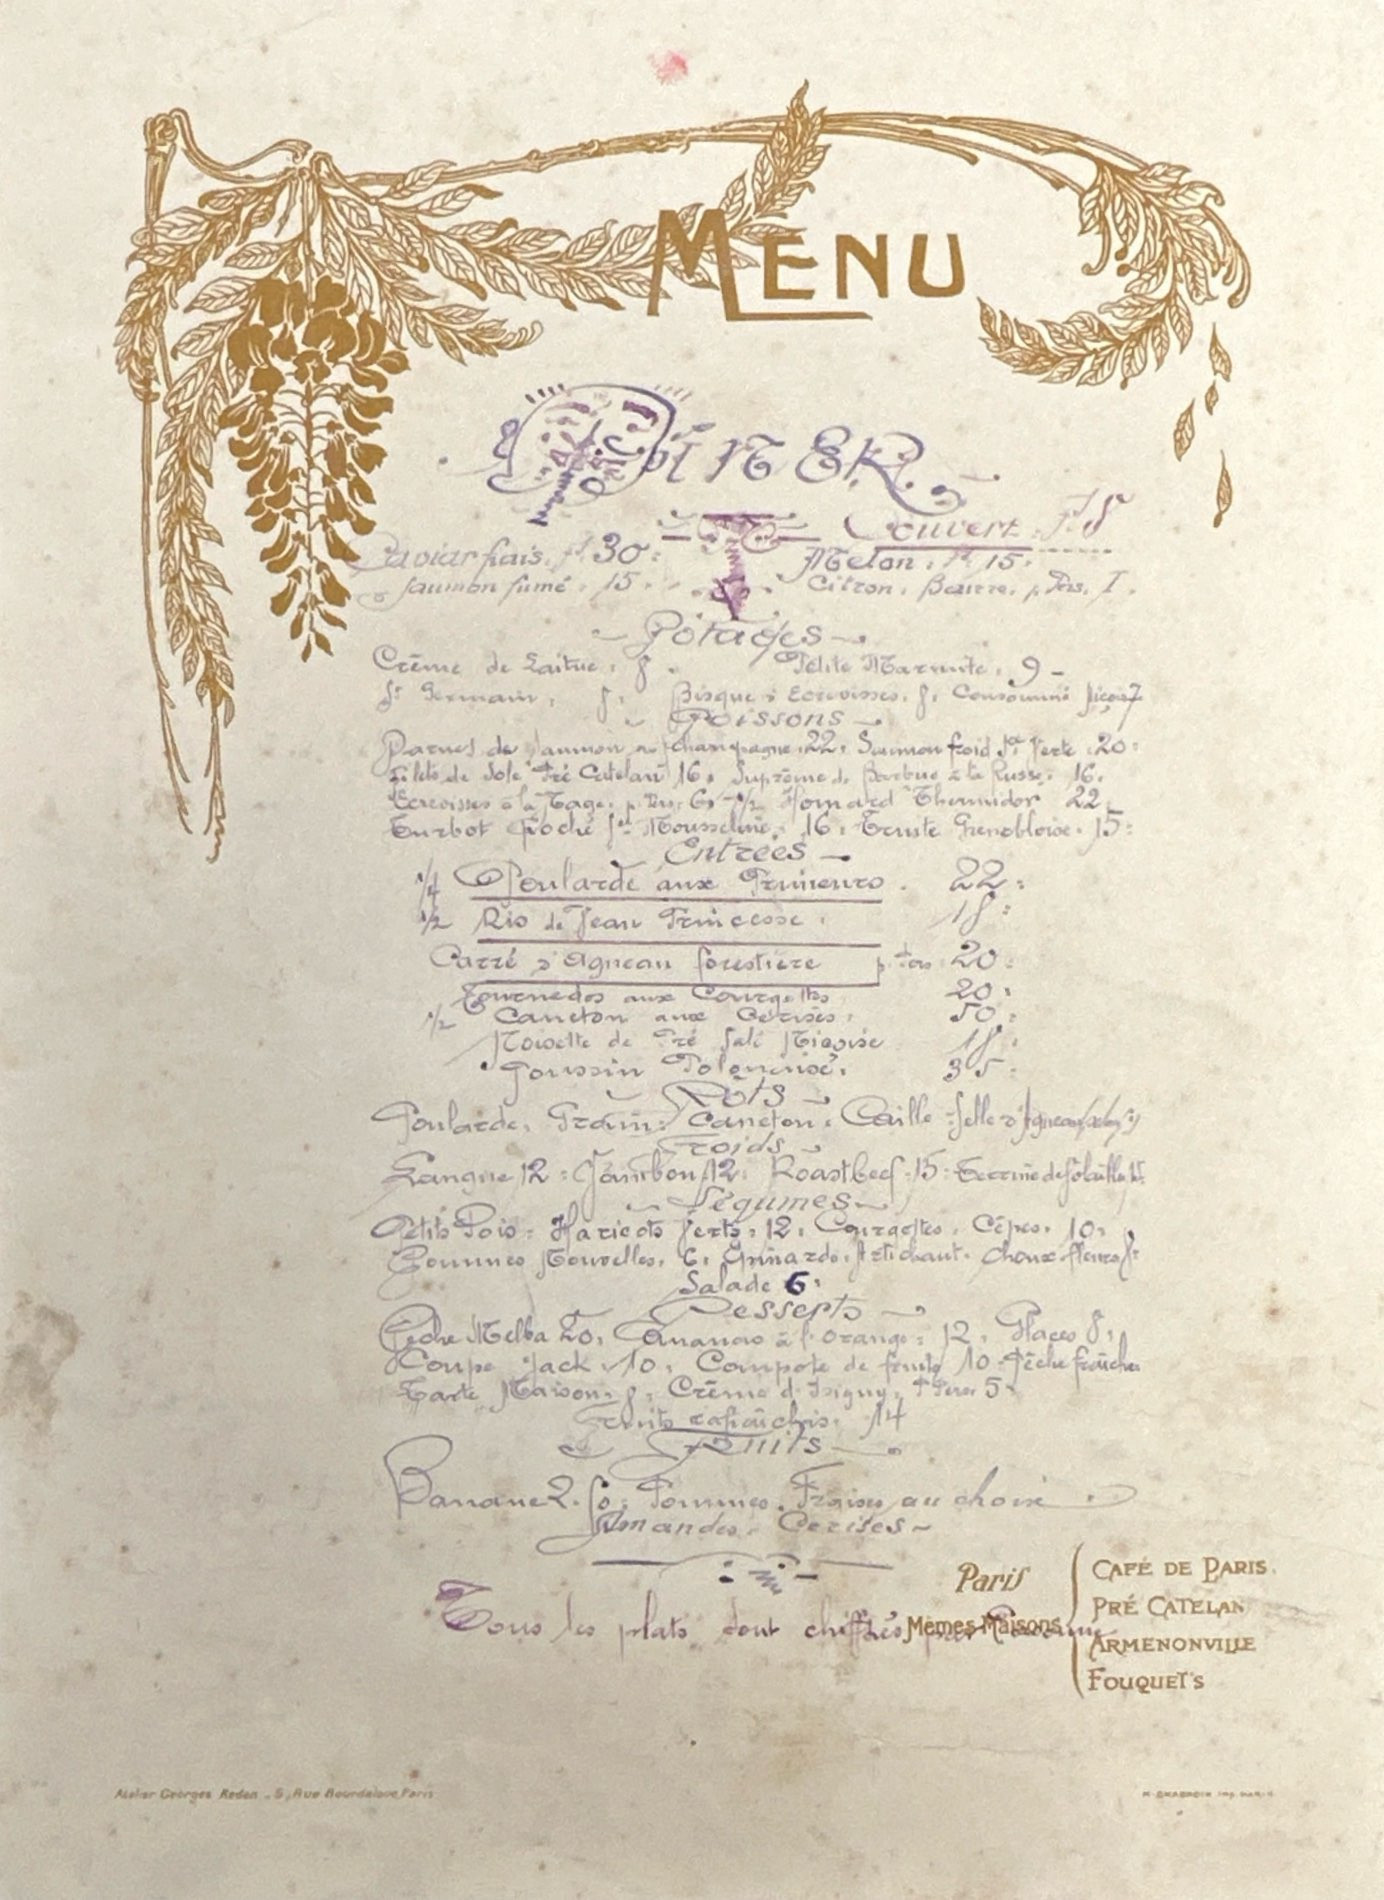 MENU
DÎNER
Couvert. F. 8
Caviar frais. f. 30. Melon. f. 15.
Saumon fumé. 15. Citron. Beurre. p. Pers. 1.
Potages
Crème de Laitue. 8. Petite Marmite. 9
St Germain. 8. Bisque d'Ecrevisses. 8. Consommé
Poissons
Darnes de Saumon au champagne. 22. Saumon froid Sce Verte. 20.
Filets de Sole Pré Catelan 16. Suprême de Barbue à la Russe. 16.
Ecrevisses à la Nage. p. Pers. 6. 1/2 Homard Thermidor 22.
Turbot Poché Sce Mousseline. 16. Truite Grenobloise. 15.
Entrées
1/4 Poularde aux Primeurs. 22.
1/2 Ris de Veau Princesse. 18.
Carré d'Agneau forestière p. Pers. 20.
Tournedos aux Courgettes. 20.
1/2 Caneton aux Cerises. 50.
Noisette de Pré Salé Niçoise 18.
Poussin Polonaise. 35.
Rôts
Poularde. Caneton. Caille. Selle d'Agneau
Froids
Langue 12. Jambon 12. Roastbeef. 15. Terrine de Volaille 15.
Légumes
Petits Pois. Haricots Verts. 12. Courgettes. Cèpes. 10.
Pommes Nouvelles. 6. Epinards. Artichaut. Choux-fleurs 8.
Salade 6.
Desserts
Pêche Melba 20. Ananas à l'Orange. 12. Glaces 8.
Coupe Jack. 10. Compote de fruits 10. Pêche fraîche
Tarte Maison. 8. Crème d'Isigny. p. Pers. 5.
Fruits rafraîchis. 14
Fruits
Banane 2.50. Pommes. Fraises au choix
Amandes. Cerises
Tous les plats sont chiffrés par Personne
Paris
Mêmes Maisons
CAFÉ DE PARIS.
PRÉ CATELAN
ARMENONVILLE
FOUQUET'S
Atelier Georges Redon. 5, Rue Bourdaloue, Paris